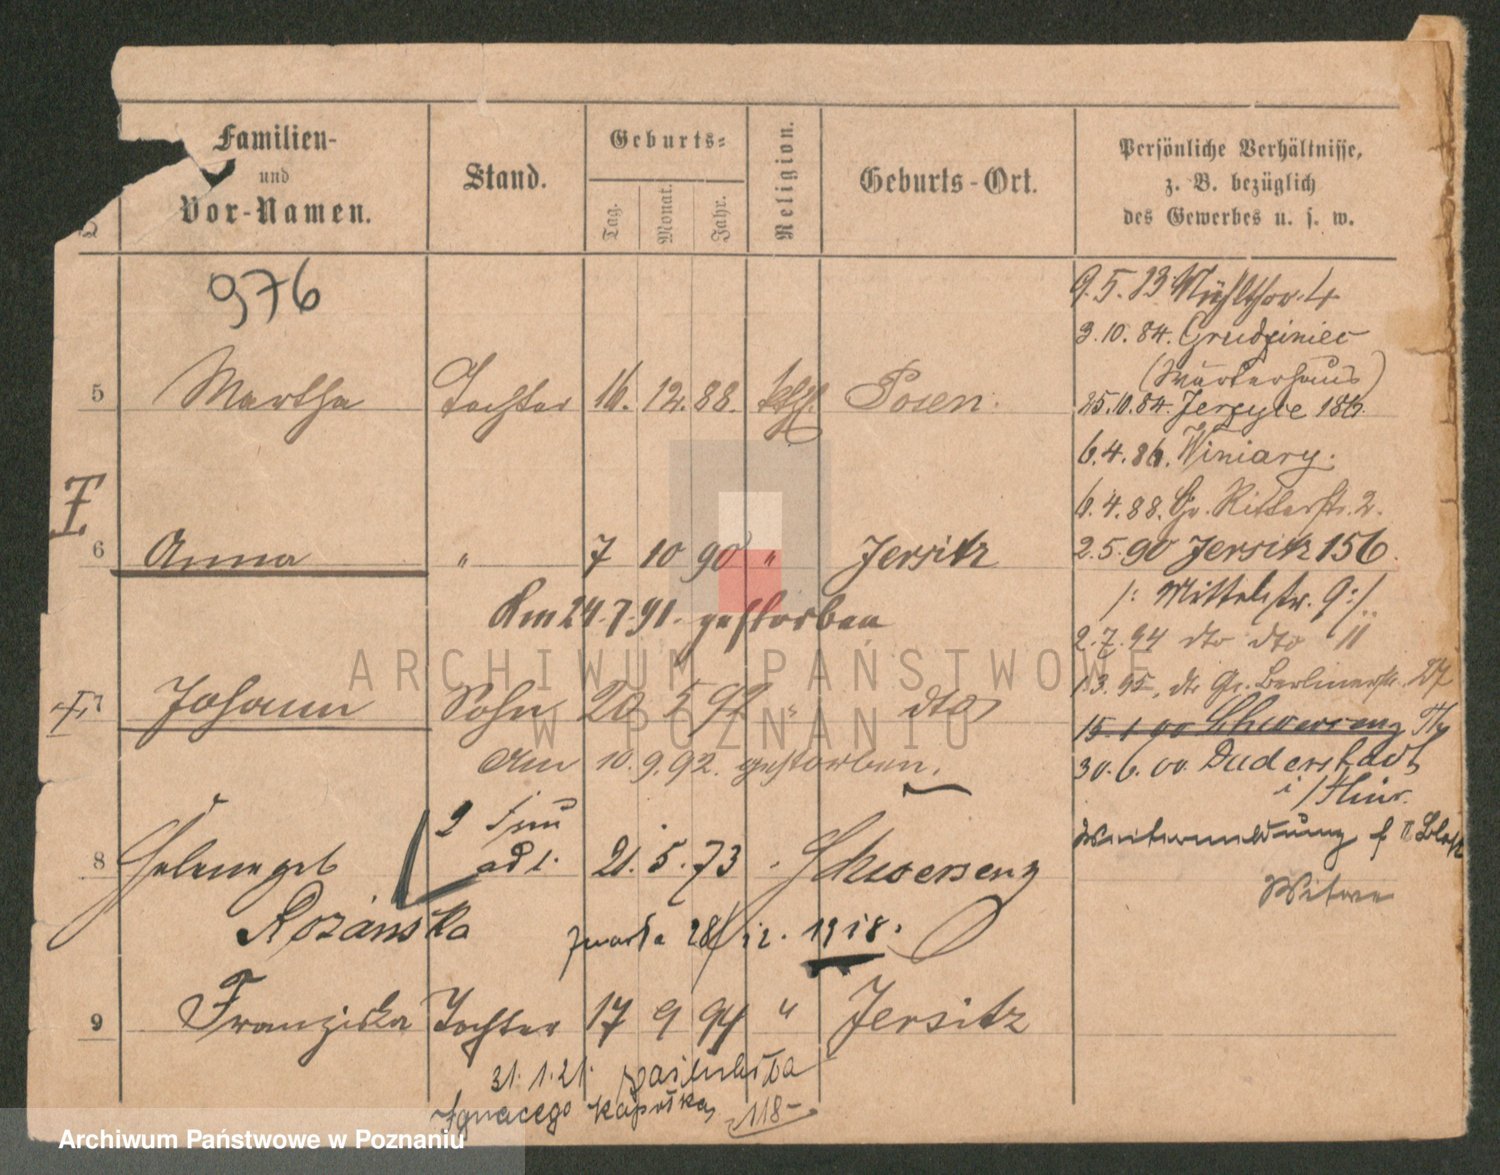 Familien-
und
Vor-Namen.
Stand.
Geburts-
Tag.
Monat.
Jahr.
Religion.
Geburts-Ort.
Persönliche Verhältnisse,
z. B. bezüglich
des Gewerbes u. s. w.
976
9.5.83 Mühlthor 4
3.10.84. Grudziniec
(Wärterhaus)
5 Martha Tochter 16. 12. 88. kth. Posen.
25.10.84. Jerzyce 186.
6.4.86. Winiary.
6.4.88. Gr. Ritterstr. 2.
6 Anna " 7 10 90 " Jersitz
2.5.90 Jersitz 156.
/: Mittelstr. 9:/
Am 24.7.91. gestorben
2.7.94 dto dto 11
1.3.95, dto Gr. Berlinerstr.
7 Johann Sohn 20 5 92 " dto
15.1.00 Schwersenz
Am 10.9.92. gestorben.
30.6.00. Duderstadt
2 Frau
8 Helene geb adl. 21. 5. 73 Schwersenz
Rozanska
zmarła 28/12. 1918.
Witwe
9 Franziska Tochter 17 9 94 " Jersitz
31.1.21. zaślubiła
Ignacego
118
ARCHIWUM PAŃSTWOWE
W POZNANIU
Archiwum Państwowe w Poznaniu